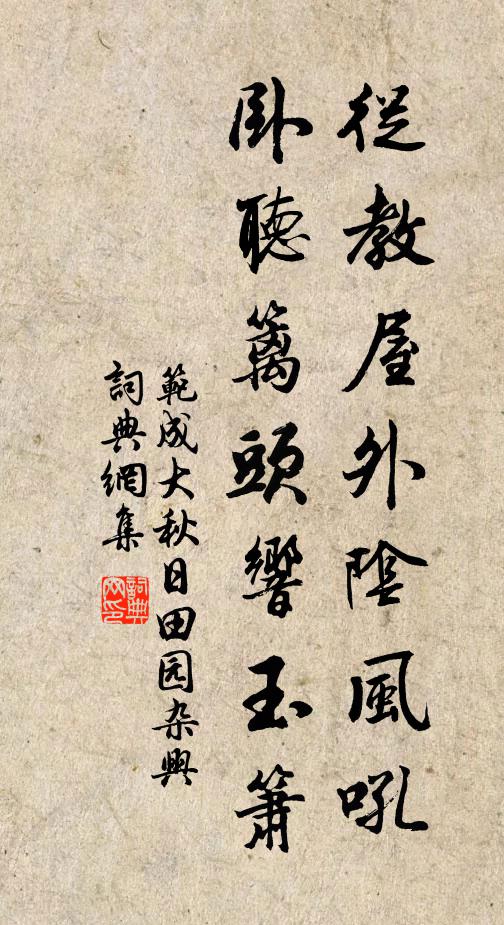 從教屋外陰風吼
臥聽籬頭響玉簫
範成大秋日田园杂興
詞典網集
詞典
网印